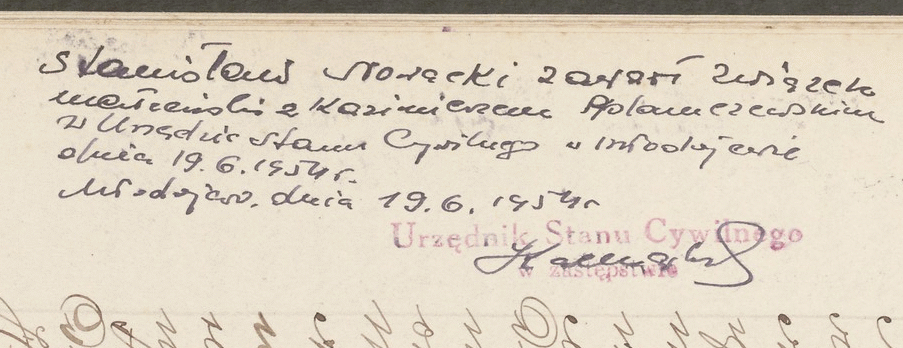 Stanisław Nowacki zawarł związek
małżeński z Kazimierzem
w Urzędzie Stanu Cywilnego w Młodojewie
dnia 19.6.1954 r.
Młodojewo, dnia 19.6.1954 r
Urzędnik Stanu Cywilnego
w zastępstwie